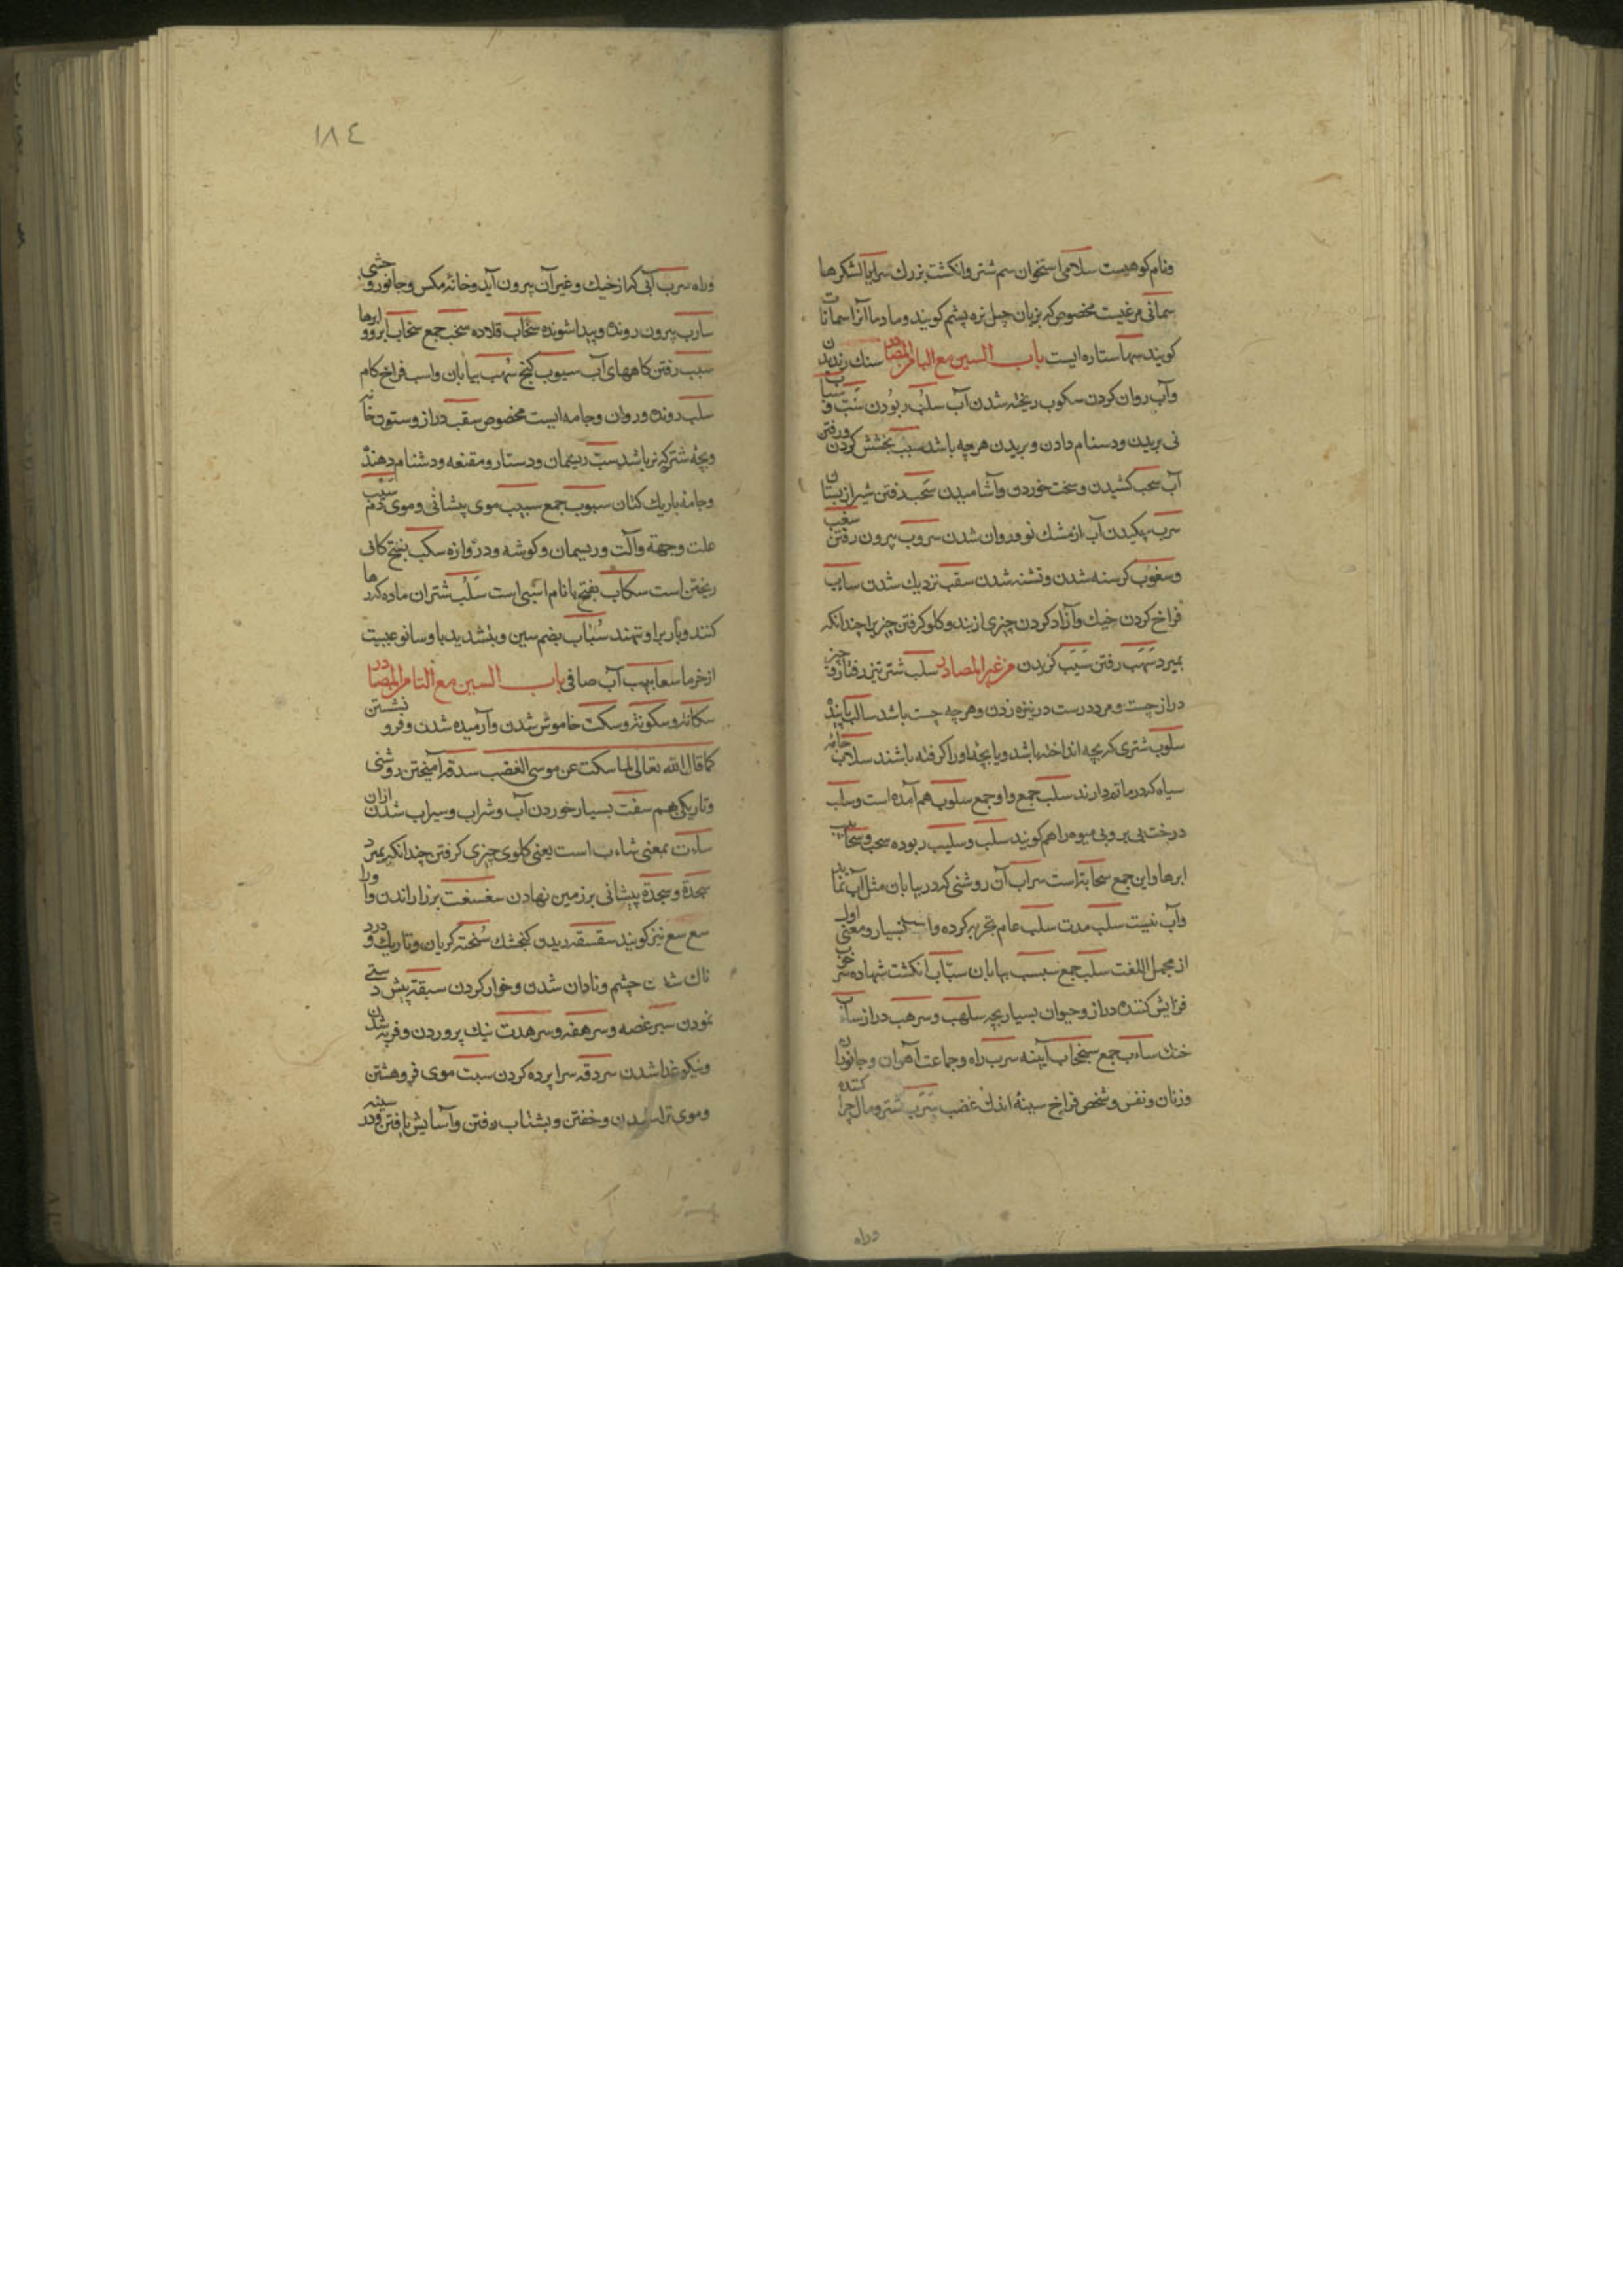 ونام کوهیست سلامی استخوان سم شتر وانکشت بزرك سرایا لشکرها
سمانی مرغیست مخصوص که بزبان چبل نره پشم کویند وما دما آنرا سمانات
کویند سها ستاره ایست باب السین مع البا من المصادر سنك رندیدن
وآب روان کردن سکوب ریخته شدن آب سلب ربودن سب وسباب
نی بریدن ودشنام دادن وبریدن هرچه باشد سیب بخشش کردن ورفتن
آب سحب کشیدن وسخت خوردن وآشامیدن سحب رفتن شیر از پستان
سرب چکیدن آب از مشك نو وروان شدن سروب بیرون رفتن سغب
وسغوب کرسنه شدن وتشنه شدن سقب نزدیك شدن ساب
فراخ کردن خیك وآزاد کردن چیزی از بند وکلو کرفتن چیزیرا چندانکه
بمیرد سهب رفتن سیب کزیدن من غیر المصادر سلب شتر تیز رفتار وچیز
دراز چست ومرد درست در نیزه زدن وهرچه چست باشد سالب
سلوب شتری که بچه انداخته باشد ویا بچه اورا کرفته باشند سلاب جامه
سیاه که در ماتم دارند سلب جمع واو جمع سلوب هم آمده است وسلب
درخت بی بر وبی میوه را هم کویند سلب وسلیب ربوده سحب وسحاب
ابرها واین جمع سحابة است سراب آن روشنی که در بیابان مثل آب نماید
وآب نیست سلب مدت سلب عام تجربه کرده بسیار ومعنی اول
از مجمل اللغت سلب جمع سبسب بیابان سباب انکشت شهاده سرحوب
فزایش کننده دراز وحیوان بسیار بچه سلهب وسرهب دراز ساب
خنك ساب جمع سنجاب آیینه سرب راه وجماعت آهوان وجانوران
وزنان ونفس وشخص فراخ سینه اندك غضب سرب شتر ومال چرا کننده
وراه
١٨٤
وراه سرب آبی که از خیك وغیر آن بیرون آید وخانه مکس وجانور وحشی
سارب بیرون رونده وپیدا شونده سخاب قلاده سخب جمع سخاب ابر وو ابرها
سبب رفتن کاههای آب سیوب کنج سهب بیابان واسب فراخ کام
سلب رونده وروان وجامه ایست مخصوص سقب دراز وستون خانه
وبچه شتر که نر باشد سب ریسمان ودستار ومقنعه ودشنام دهنده
وجامه باریك کتان سبوب جمع سبیب موی پیشانی وموی دم سبب
علت وجهة وآلت وریسمان وکوشه ودروازه سکب بفتح کاف
ریختن است سکاب بفتح با نام اسبی است سلب شتران ماده کردها
کنند وبار برا ونهند سباب بضم سین وبتشدید با وسا نوعیست
از خرما سعابیب آب صافی باب السین مع التا من المصادر
سکاتة وسکوتة وسکت خاموش شدن وآرمیده شدن وفرو نشستن
کما قال الله تعالی لما سکت عن موسی الغضب سدقة آمیختن روشنی
وتاریکی بهم سفت بسیار خوردن آب وشراب وسیراب شدن ازان
سات بمعنی شاب است یعنی کلوی چیزی کرفتن چندانکه بمیرد
سجدة وسجدة پیشانی بر زمین نهادن سغسغت بز را راندن واورا
سع سع نیز کویند سقسقة ریدن کنجشك سخنة کریان وتاریك ودرد
ناك شدن چشم ونادان شدن وخوار کردن سبقة پیش دستی
نمودن سیر غصه وسرهفة وسرهدت نیك پروردن وفربه شدن
ونیکو غذا شدن سردقة سرا پرده کردن سبت موی فروهشتن
وموی تراشیدن وخفتن وبشتاب رفتن وآسایش یافتن ودر سینه